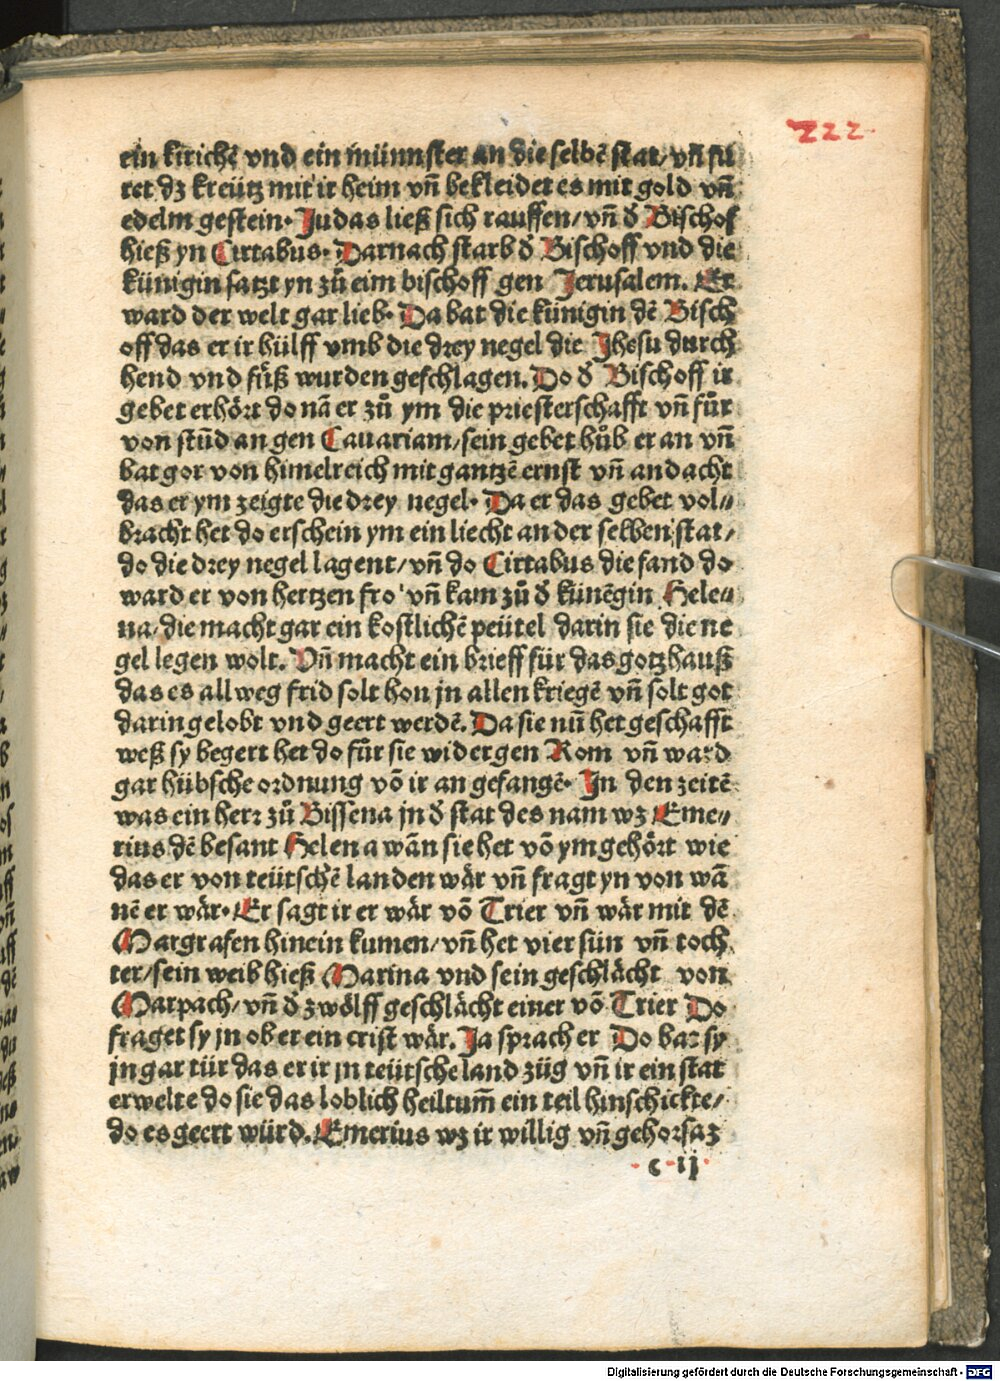 222
ein kirichē vnd ein münnster an die selbē stat/ vn̄ fü
ret dz kreütz mit ir heim vn̄ bekleidet es mit gold vn̄
edelm gestein. Judas ließ sich tauffen/ vn̄ d̄ Bischof
hieß yn Cirtabus. Darnach starb d̄ Bischoff vnd die
künigin satzt yn zů eim bischoff gen Jerusalem. Er
ward der welt gar lieb. Da bat die künigin dē Bisch
off das er ir hülff vmb die drey negel die Jhesu durch
hend vnd füß wurden geschlagen. Do d̄ Bischoff ir
gebet erhört do nā er zů ym die priesterschafft vn̄ fůr
von stūd an gen Cauariam/ sein gebet hůb er an vn̄
bat got von himelreich mit gantzē ernst vn̄ andacht
das er ym zeigte die drey negel. Da er das gebet vol//
bracht het do erschein ym ein liecht an der selben stat/
do die drey negel lagent/ vn̄ do Cirtabus die fand do
ward er von hertzen fro vn̄ kam zů d̄ künēgin Hele//
na/ die macht gar ein kostlichē peütel darin sie die ne
gel legen wolt. Vn̄ macht ein brieff für das gotzhauß
das es allweg frid solt hon jn allen kriegē vn̄ solt got
darin gelobt vnd geert werdē. Da sie nū het geschafft
weß sy begert het do fůr sie wider gen Rom vn̄ ward
gar hübsche ordnung vō ir an gefangē. In den zeitē
was ein herr zů Bissena jn d̄ stat des nam wz Eme//
rius dē besant Helena wān sie het vō ym gehört wie
das er von teütschē landen wär vn̄ fragt yn von wā
nē er wär. Er sagt ir er wär vō Trier vn̄ wär mit dē
Margrafen hinein kumen/ vn̄ het vier sün vn̄ toch
ter/ sein weib hieß Marina vnd sein geschlächt von
Marpach/ vn̄ d̄ zwölff geschlächt einer vō Trier Do
fraget sy jn ob er ein crist wär. Ja sprach er Do bat sy
jn gar tür das er ir jn teütsche land züg vn̄ ir ein stat
erwelte do sie das loblich heiltum̄ ein teil hinschickte/
do es geert würd. Emerius wz ir willig vn̄ gehorsaz
c ij
Digitalisierung gefördert durch die Deutsche Forschungsgemeinschaft - DFG